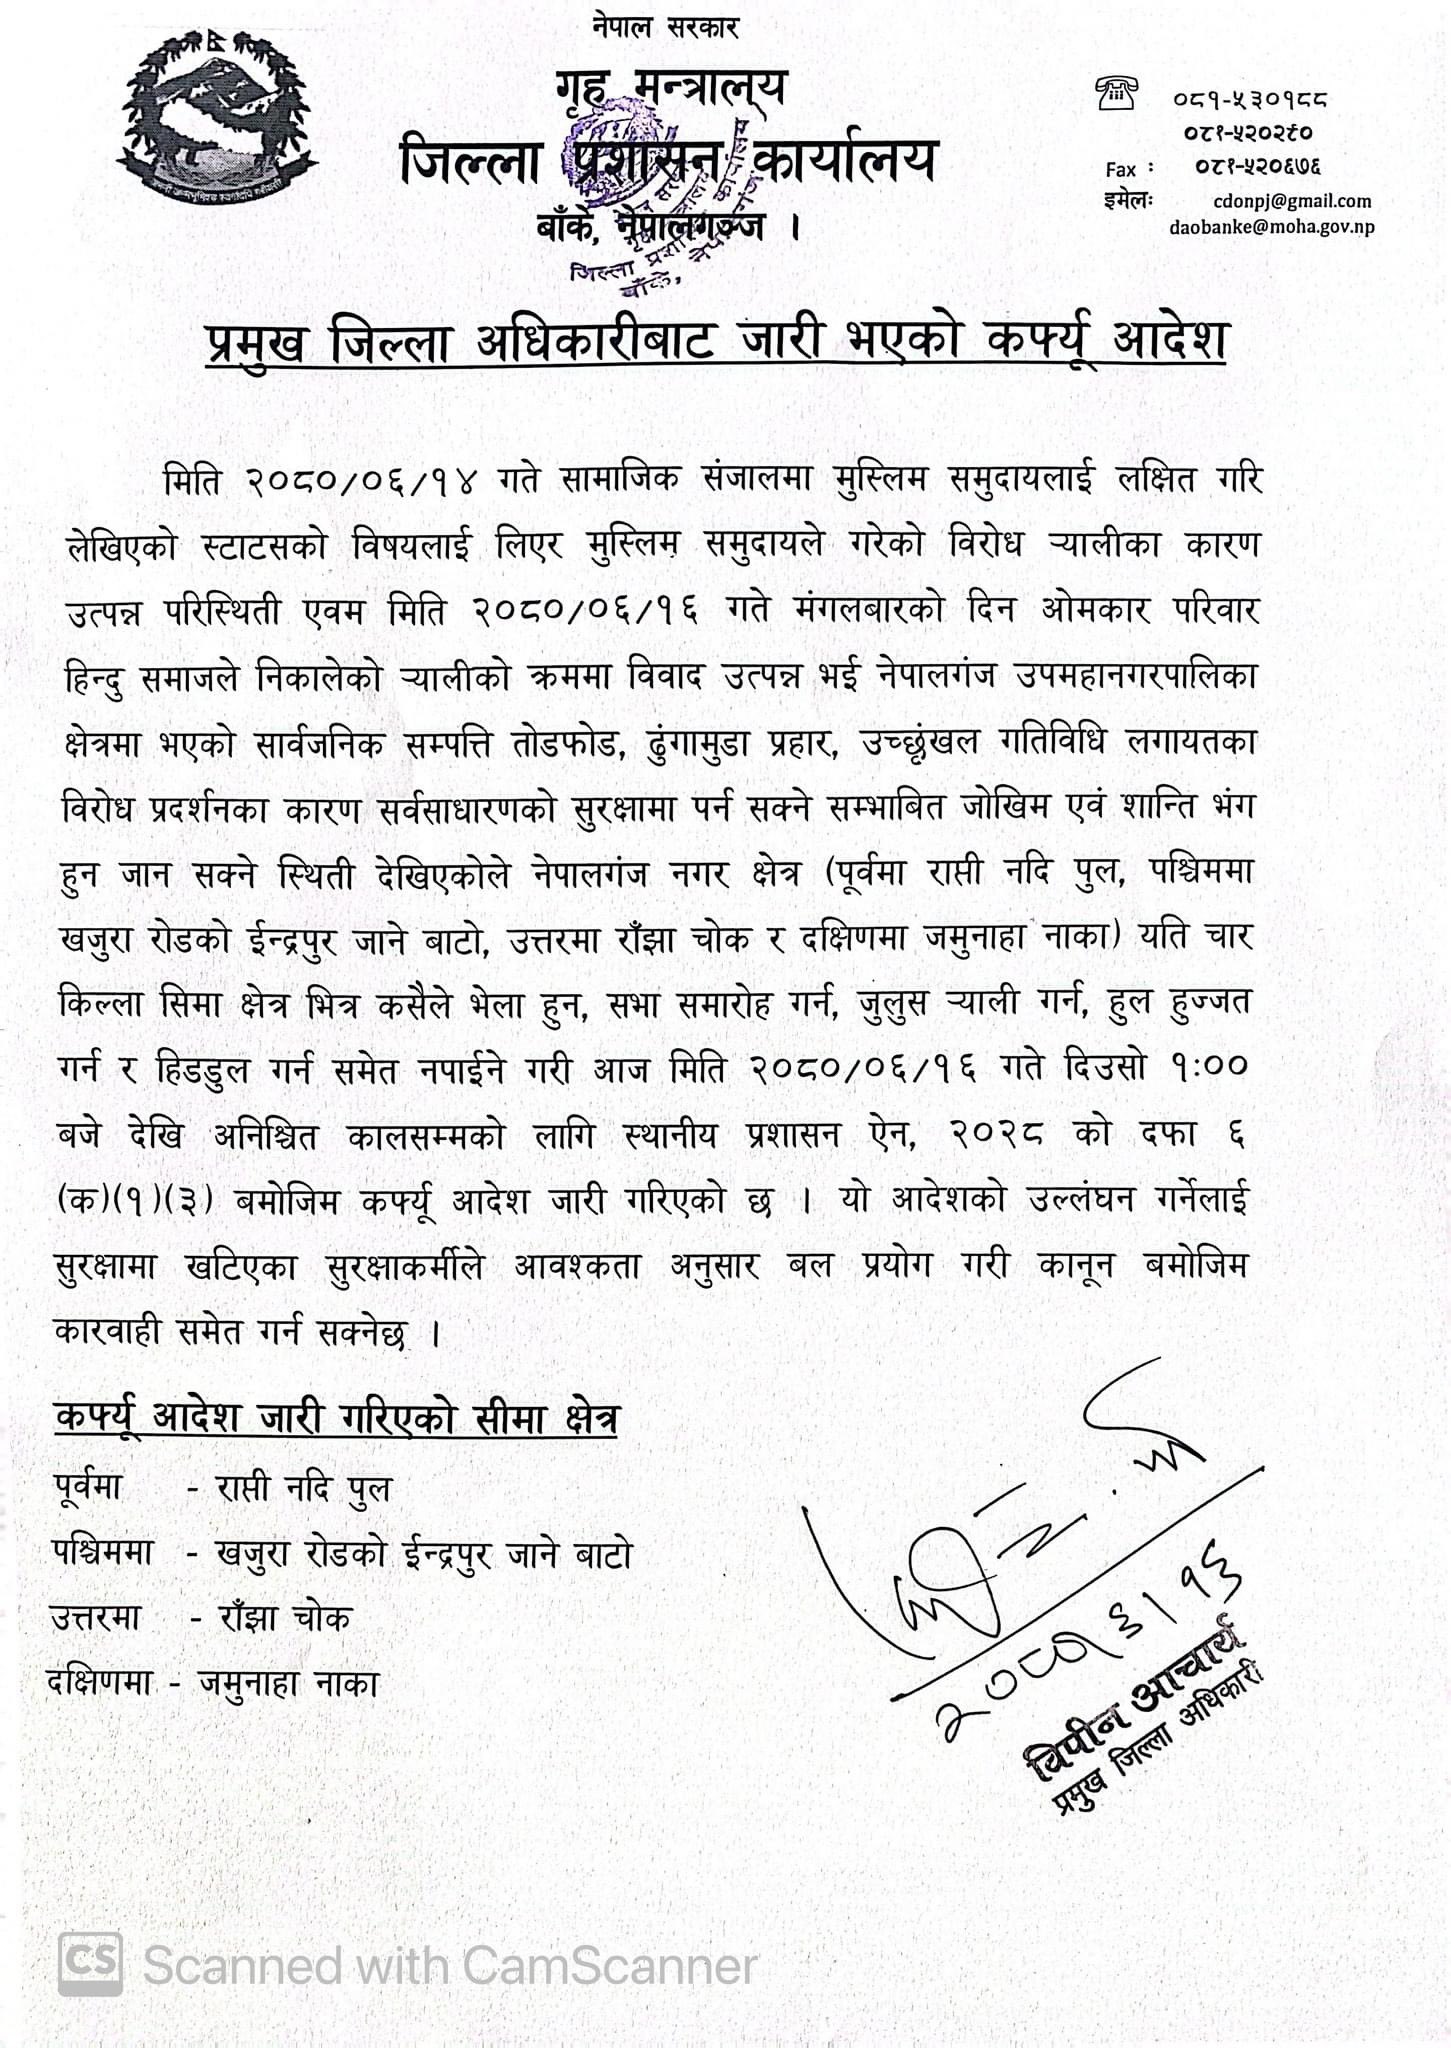 नेपाल सरकार
गृह मन्त्रालय
जिल्ला प्रशासन कार्यालय
बाँके, नेपालगञ्ज ।
०८१-५३०१८८
०८१-५२०२९०
Fax : ०८१-५२०६७६
इमेलः cdonpj@gmail.com
daobanke@moha.gov.np
जिल्ला प्रशासन कार्यालय
बाँके, नेपालगंज
प्रमुख जिल्ला अधिकारीबाट जारी भएको कर्फ्यू आदेश
मिति २०८०/०६/१४ गते सामाजिक संजालमा मुस्लिम समुदायलाई लक्षित गरि
लेखिएको स्टाटसको विषयलाई लिएर मुस्लिम समुदायले गरेको विरोध र्‍यालीका कारण
उत्पन्न परिस्थिती एवम मिति २०८०/०६/१६ गते मंगलबारको दिन ओमकार परिवार
हिन्दु समाजले निकालेको र्‍यालीको क्रममा विवाद उत्पन्न भई नेपालगंज उपमहानगरपालिका
क्षेत्रमा भएको सार्वजनिक सम्पत्ति तोडफोड, ढुंगामुडा प्रहार, उच्छृंखल गतिविधि लगायतका
विरोध प्रदर्शनका कारण सर्वसाधारणको सुरक्षामा पर्न सक्ने सम्भाबित जोखिम एवं शान्ति भंग
हुन जान सक्ने स्थिती देखिएकोले नेपालगंज नगर क्षेत्र (पूर्वमा राप्ती नदि पुल, पश्चिममा
खजुरा रोडको ईन्द्रपुर जाने बाटो, उत्तरमा राँझा चोक र दक्षिणमा जमुनाहा नाका) यति चार
किल्ला सिमा क्षेत्र भित्र कसैले भेला हुन, सभा समारोह गर्न, जुलुस र्‍याली गर्न, हुल हुज्जत
गर्न र हिडडुल गर्न समेत नपाईने गरी आज मिति २०८०/०६/१६ गते दिउसो १:००
बजे देखि अनिश्चित कालसम्मको लागि स्थानीय प्रशासन ऐन, २०२८ को दफा ६
(क)(१)(३) बमोजिम कर्फ्यू आदेश जारी गरिएको छ । यो आदेशको उल्लंघन गर्नेलाई
सुरक्षामा खटिएका सुरक्षाकर्मीले आवश्कता अनुसार बल प्रयोग गरी कानून बमोजिम
कारवाही समेत गर्न सक्नेछ ।
कर्फ्यू आदेश जारी गरिएको सीमा क्षेत्र
पूर्वमा - राप्ती नदि पुल
पश्चिममा - खजुरा रोडको ईन्द्रपुर जाने बाटो
उत्तरमा - राँझा चोक
दक्षिणमा - जमुनाहा नाका
विपीन आचार्य
प्रमुख जिल्ला अधिकारी
CS Scanned with CamScanner